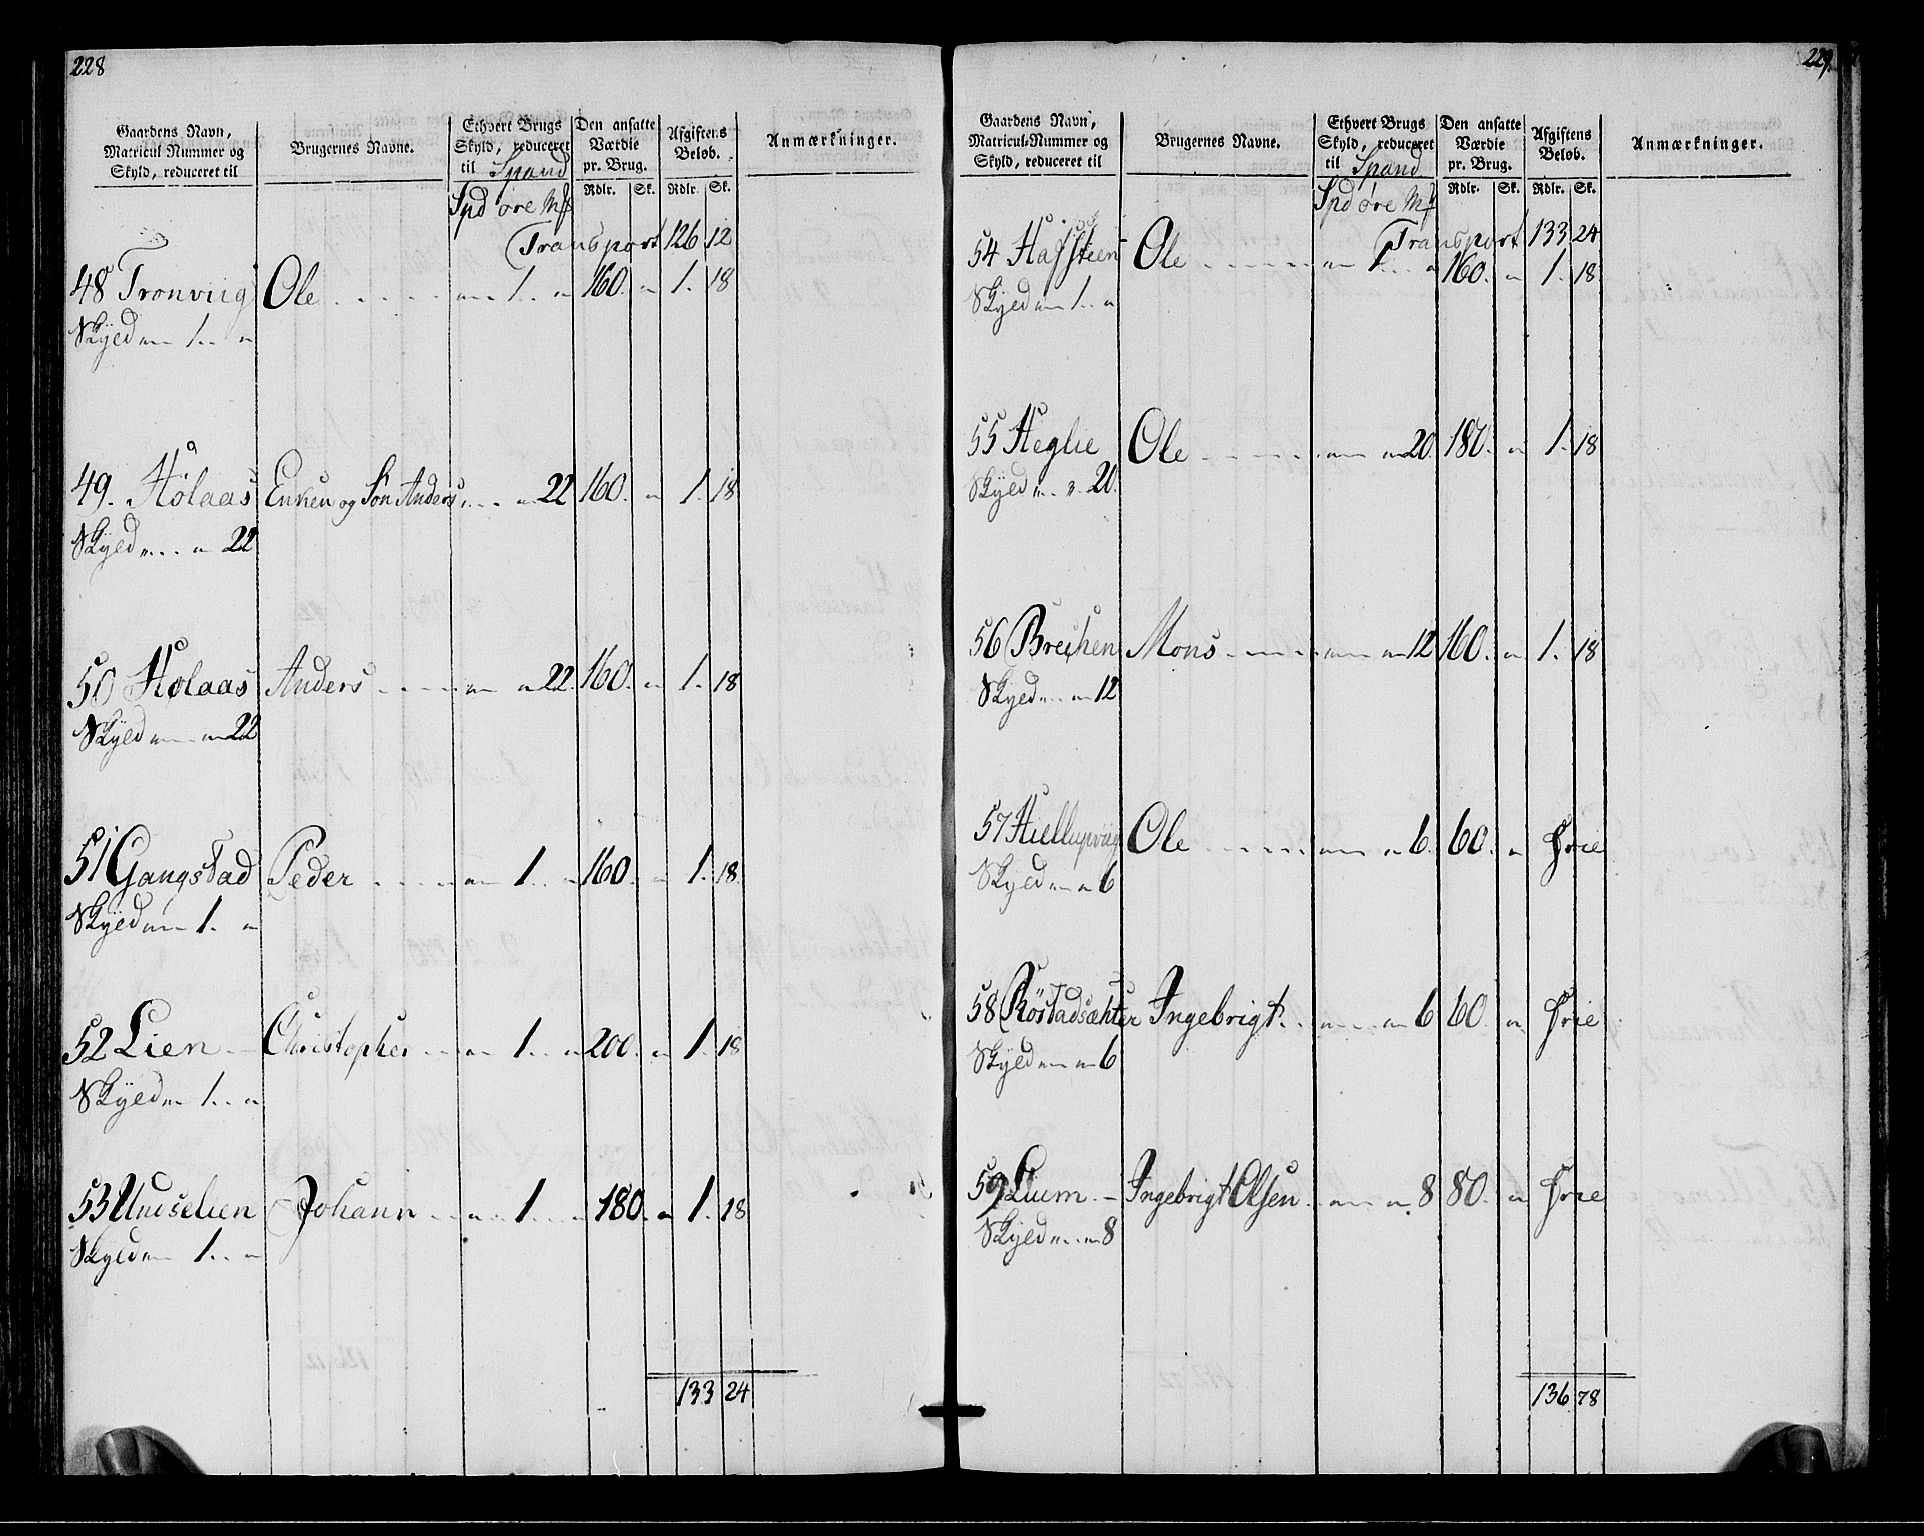 228
Gaardens Navn, Matricul Nummer og Skyld, reduceret til
Brugernes Navne.
Ethvert Brugs Skyld, reduceret til Spand
Den ansatte Værdie pr. Brug.
Afgiftens Beløb.
Anmærkninger.
Rdlr. Sk. Rdlr. Sk.
Spd øre Mk
Transport 126 12
48 Tronviig Ole . . . . . „ 1. „ 160. „ 1. 18
Skyld „ 1. „
49. Hølaas Enken og Søn Anders, . . . „ 22 160. „ 1. 18
Skyld „ . . „ 22
50 Hølaas Anders . . . . „ „ 22. 160. „ 1. 18
Skyld „ „ 22
51 Gangstad Peder . . . . „ 1. . „ 160. „ 1. 18.
Skyld „ 1. „
52 Lien Christopher . . „ 1. . „ 200. „ 1. 18
Skyld „ 1. . „
53 Undselien Johann . . „ 1. . „ 180. „ 1. 18
Skyld „ 1. . „
133 24
229.
Gaardens Navn, Matricul-Nummer og Skyld, reduceret til
Brugernes Navne.
Ethvert Brugs Skyld, reduceret til Spand
Den ansatte Værdie pr. Brug.
Afgiftens Beløb.
Anmærkninger.
Rdlr. Sk. Rdlr. Sk.
Spd øre Mk
Transport 133 24
54 Hafsteen Ole . . . . . „ 1. . „ 160. „ 1. 18.
Skyld „ 1. . „
55 Heglie Ole . . . . . „ „ 20. 180. „ 1. 18
Skyld „ . „ . 20.
56 Breihen Mons . . . . „ „ 12 160. „ 1. 18
Skyld „ . „ 12
57 Hiellupviig Ole . . . . . „ „ 6. 60. „ Frie
Skyld „ „ 6
58 Röstadsæhter Ingebrigt . . „ . . „ 6 60. „ Frie
Skyld „ „ 6
59 Lium. – Ingebrigt Olsen . . „ „ 8 80. „ Frie
Skyld „ . „ 8
136. 78